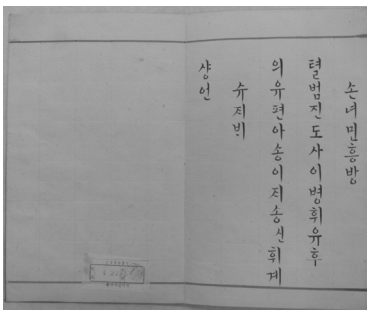 손녀민흥방
텰범진도사이병휘유후
의유편아송이지송신휘계
슈지비
샹언